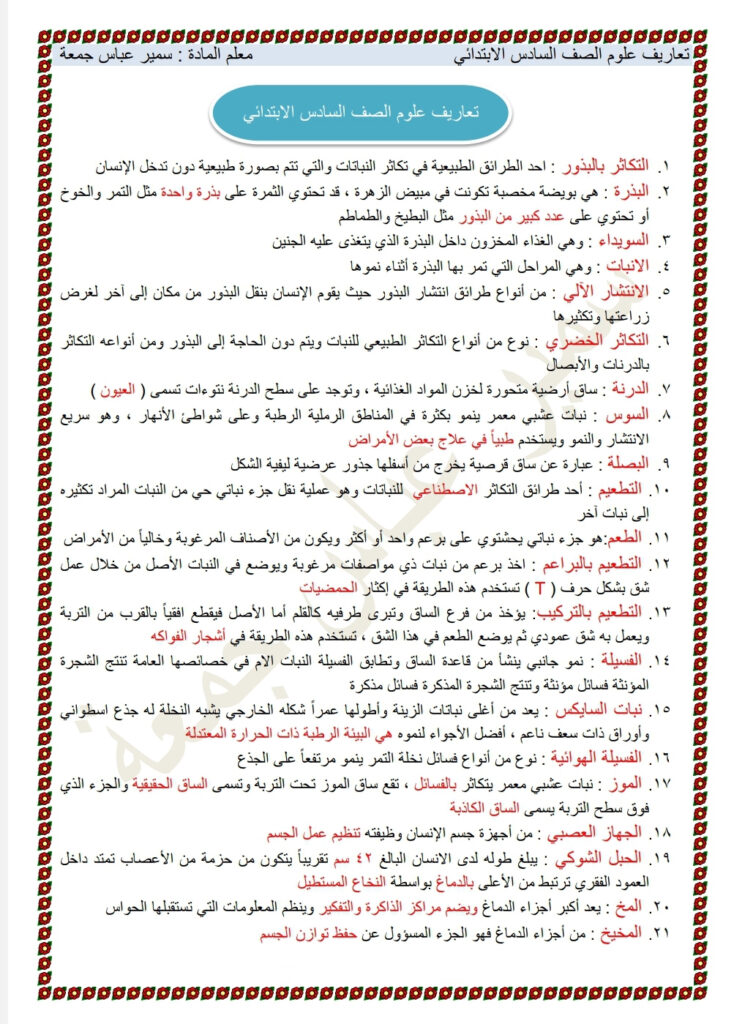 تعاريف علوم الصف السادس الابتدائي
معلم المادة : سمير عباس جمعة
تعاريف علوم الصف السادس الابتدائي
١. التكاثر بالبذور : احد الطرائق الطبيعية في تكاثر النباتات والتي تتم بصورة طبيعية دون تدخل الإنسان
٢. البذرة : هي بويضة مخصبة تكونت في مبيض الزهرة ، قد تحتوي الثمرة على بذرة واحدة مثل التمر والخوخ
أو تحتوي على عدد كبير من البذور مثل البطيخ والطماطم
٣. السويداء : وهي الغذاء المخزون داخل البذرة الذي يتغذى عليه الجنين
٤. الانبات : وهي المراحل التي تمر بها البذرة أثناء نموها
٥. الإنتشار الآلي : من أنواع طرائق انتشار البذور حيث يقوم الإنسان بنقل البذور من مكان إلى آخر لغرض
زراعتها وتكثيرها
٦. التكاثر الخضري : نوع من أنواع التكاثر الطبيعي للنبات ويتم دون الحاجة إلى البذور ومن أنواعه التكاثر
بالدرنات والأبصال
٧. الدرنة : ساق أرضية متحورة لخزن المواد الغذائية ، وتوجد على سطح الدرنة نتوءات تسمى ( العيون )
٨. السوس : نبات عشبي معمر ينمو بكثرة في المناطق الرملية الرطبة وعلى شواطئ الأنهار ، وهو سريع
الانتشار والنمو ويستخدم طبياً في علاج بعض الأمراض
٩. البصلة : عبارة عن ساق قرصية يخرج من أسفلها جذور عرضية ليفية الشكل
١٠. التطعيم : أحد طرائق التكاثر الاصطناعي للنباتات وهو عملية نقل جزء نباتي حي من النبات المراد تكثيره
إلى نبات آخر
١١. الطعم:هو جزء نباتي يحشتوي على برعم واحد أو أكثر ويكون من الأصناف المرغوبة وخالياً من الأمراض
١٢. التطعيم بالبراعم : اخذ برعم من نبات ذي مواصفات مرغوبة ويوضع في النبات الأصل من خلال عمل
شق بشكل حرف ( T ) تستخدم هذه الطريقة في إكثار الحمضيات
١٣. التطعيم بالتركيب: يؤخذ من فرع الساق وتبرى طرفيه كالقلم أما الأصل فيقطع افقياً بالقرب من التربة
ويعمل به شق عمودي ثم يوضع الطعم في هذا الشق ، تستخدم هذه الطريقة في أشجار الفواكه
١٤. الفسيلة : نمو جانبي ينشأ من قاعدة الساق وتطابق الفسيلة النبات الام في خصائصها العامة تنتج الشجرة
المؤنثة فسائل مؤنثة وتنتج الشجرة المذكرة فسائل مذكرة
١٥. نبات السايكس : يعد من أغلى نباتات الزينة وأطولها عمراً شكله الخارجي يشبه النخلة له جذع اسطواني
وأوراق ذات سعف ناعم ، أفضل الأجواء لنموه هي البيئة الرطبة ذات الحرارة المعتدلة
١٦. الفسيلة الهوائية : نوع من أنواع فسائل نخلة التمر ينمو مرتفعاً على الجذع
١٧. الموز : نبات عشبي معمر يتكاثر بالفسائل ، تقع ساق الموز تحت التربة وتسمى الساق الحقيقية والجزء الذي
فوق سطح التربة يسمى الساق الكاذبة
١٨. الجهاز العصبي : من أجهزة جسم الإنسان وظيفته تنظيم عمل الجسم
١٩. الحبل الشوكي : يبلغ طوله لدى الانسان البالغ ٤٢ سم تقريباً يتكون من حزمة من الأعصاب تمتد داخل
العمود الفقري ترتبط من الأعلى بالدماغ بواسطة النخاع المستطيل
٢٠. المخ : يعد أكبر أجزاء الدماغ ويضم مراكز الذاكرة والتفكير وينظم المعلومات التي تستقبلها الحواس
٢١. المخيخ : من أجزاء الدماغ فهو الجزء المسؤول عن حفظ توازن الجسم
سمير عباس جمعة